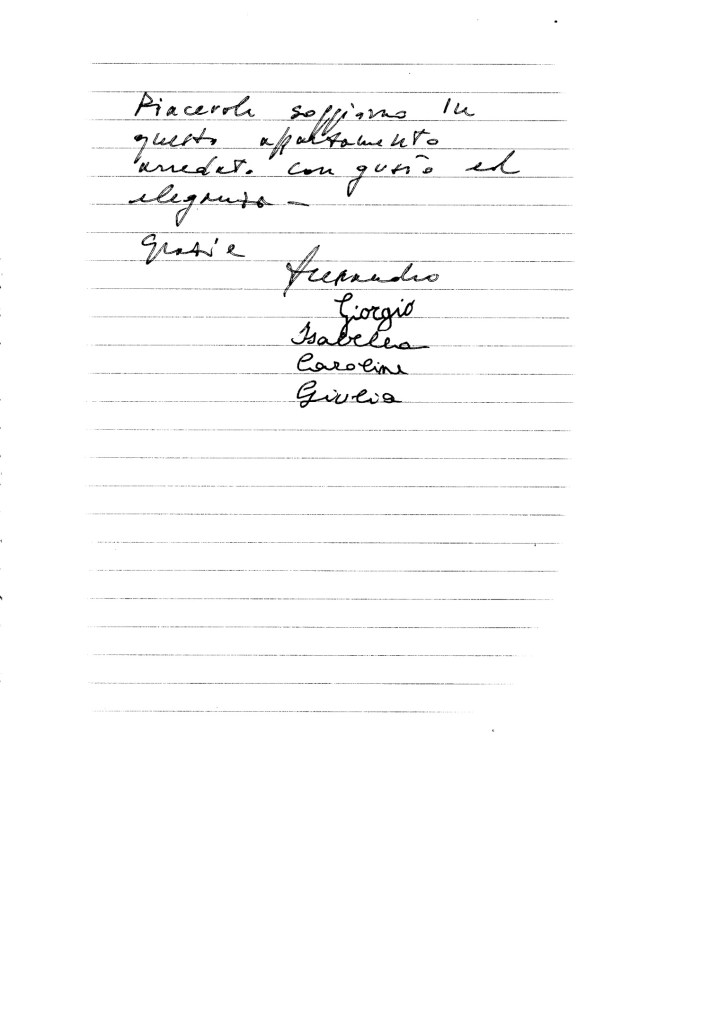 Piacevole soggiorno in
questo appartamento
arredato con gusto ed
eleganza -
Grazie
Alessandro
Giorgio
Isabella
Caroline
Giulia